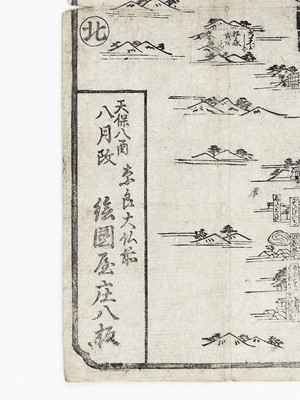 北
天保八酉
八月改
奈良大仏前
絵圖屋庄八板